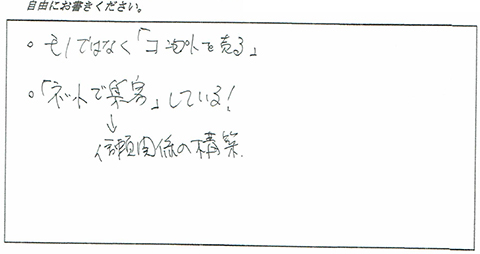 自由にお書きください。
○ モノではなく「コンセプトを売る」
○「ネットで集客」している!
↓
信頼関係の構築.